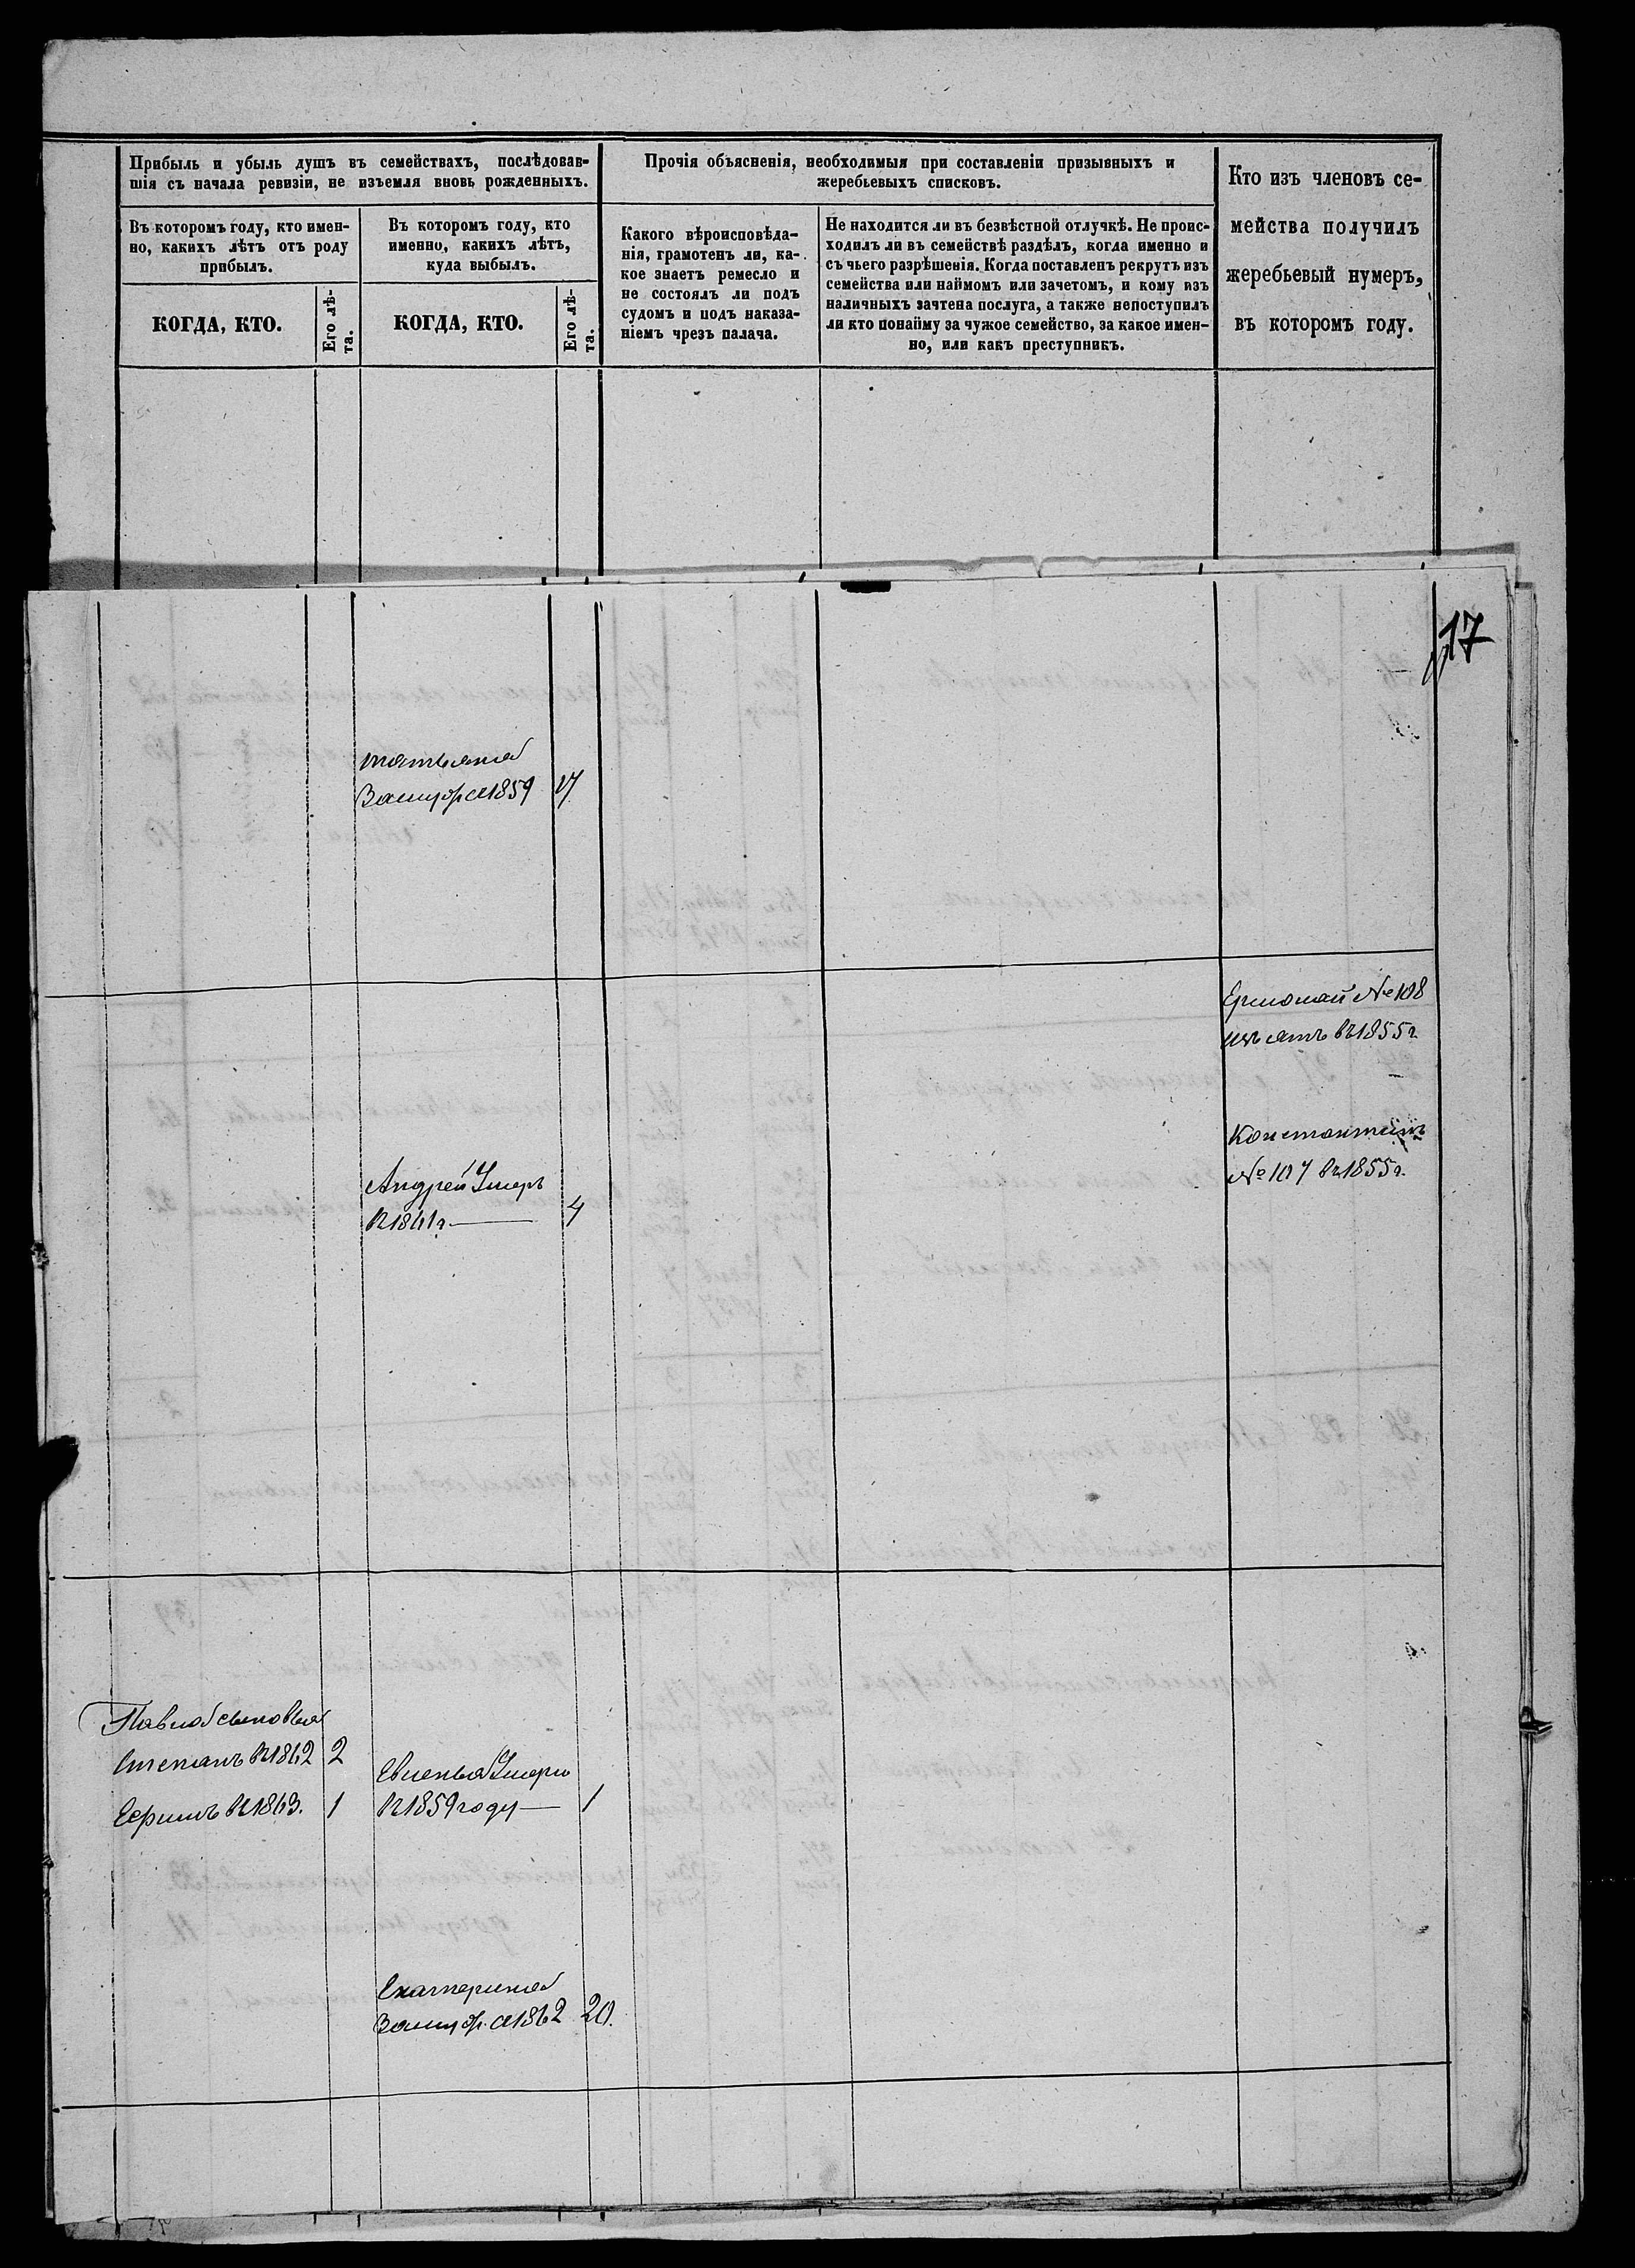 Прибыль и убыль душъ въ семействахъ, послѣдовав-
шія съ начала ревизіи, не изъемля вновь рожденныхъ.
Въ которомъ году, кто имен-
но, какихъ лѣтъ отъ роду
прибылъ.
Въ которомъ году, кто
именно, какихъ лѣтъ,
куда выбылъ.
КОГДА, КТО.
Его лѣ-
та.
КОГДА, КТО.
Его лѣ-
та.
Прочія объясненія, необходимыя при составленіи призывныхъ и
жеребьевыхъ списковъ.
Какого вѣроисповѣда-
нія, грамотенъ ли, ка-
кое знаетъ ремесло и
не состоялъ ли подъ
судомъ и подъ наказа-
ніемъ чрезъ палача.
Не находится ли въ безвѣстной отлучкѣ. Не проис-
ходилъ ли въ семействѣ раздѣлъ, когда именно и
съ чьего разрѣшенія. Когда поставленъ рекрутъ изъ
семейства или наймомъ или зачетомъ, и кому изъ
наличныхъ зачтена послуга, а также непоступилъ
ли кто понайму за чужое семейство, за какое имен-
но, или какъ преступникъ.
Кто изъ членовъ се-
мейства получилъ
жеребьевый нумеръ,
въ которомъ году.
17
татьяна
Замуж. 1859
17
Ермолай № 108
изъятъ въ 1855 г.
Константинъ
№ 107 въ 1855 г.
Андрей Умеръ
въ 1861 г.
4
Павла сыновья
Степанъ въ 1862 2
Ефимъ въ 1863. 1
Евгенья Умерла
въ 1859 году 1
Екатерина
Замуж. 1862 20.